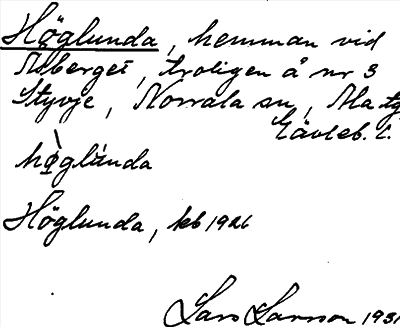 Höglunda, hemman vid
Åsberget, troligen å nr 3
Styvje, Norrala sn, Ala tg
Gävleb. l.
hö̀glúnda
Höglunda, kb 1926
Lars Larsson 1931